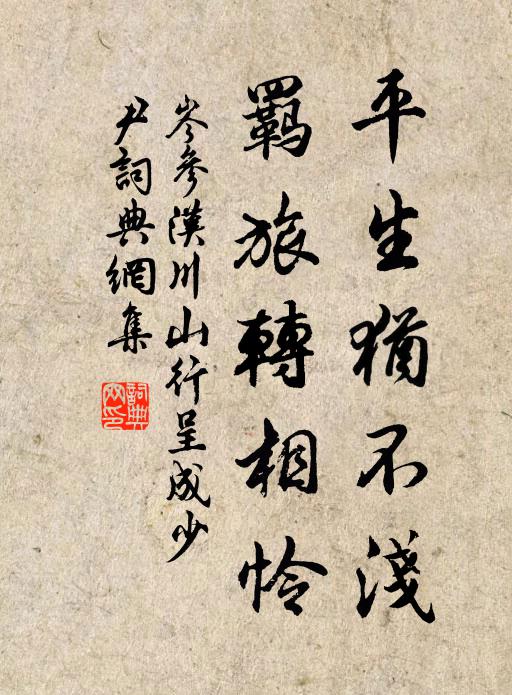 平生猶不淺
羈旅轉相怜
岑參漢川山行呈成少
尹詞典網集
詞典网印